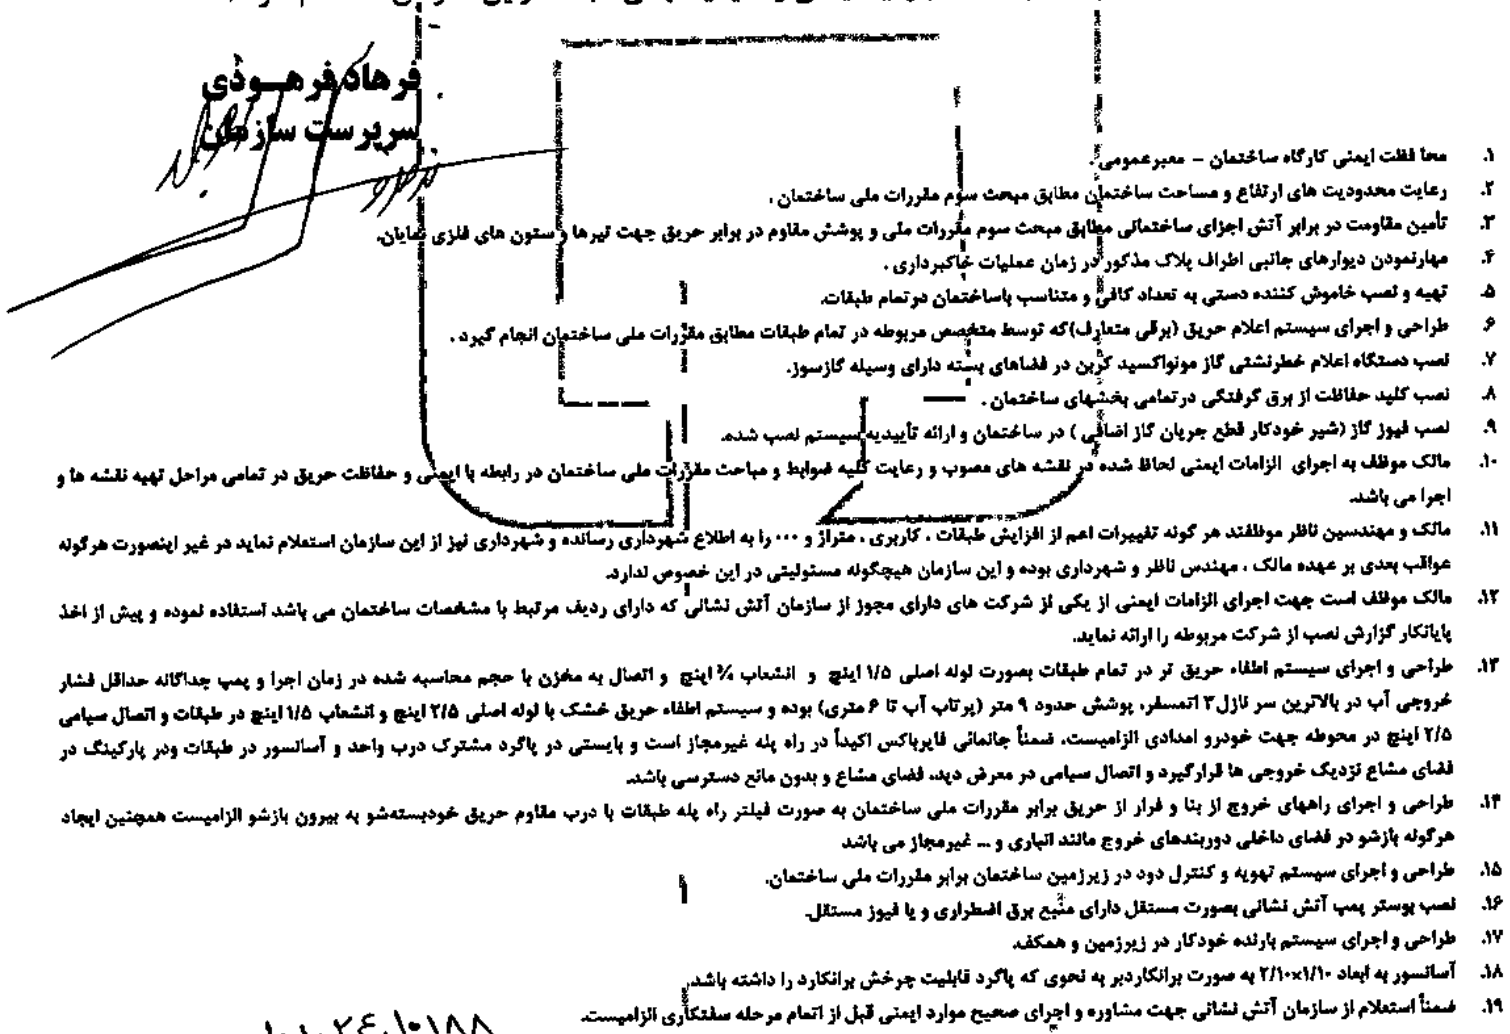 فرهاد فرهـــوذی
سرپرست سازمان
۱. محا فظت ایمنی کارگاه ساختمان – معبرعمومی .
۲. رعایت محدودیت های ارتفاع و مساحت ساختمان مطابق مبحث سوم مقررات ملی ساختمان .
۳. تأمین مقاومت در برابر آتش اجزای ساختمانی مطابق مبحث سوم مقررات ملی و پوشش مقاوم در برابر حریق جهت تیرها و ستون های فلزی نمایان.
۴. مهارنمودن دیوارهای جانبی اطراف پلاک مذکور در زمان عملیات خاکبرداری .
۵. تهیه و نصب خاموش کننده دستی به تعداد کافی و متناسب باساختمان درتمام طبقات.
۶. طراحی و اجرای سیستم اعلام حریق (برقی متعارف)که توسط متخصص مربوطه در تمام طبقات مطابق مقررات ملی ساختمان انجام گیرد .
۷. نصب دستگاه اعلام خطرنشتی گاز مونواکسید کربن در فضاهای بسته دارای وسیله گازسوز.
۸. نصب کلید حفاظت از برق گرفتگی درتمامی بخشهای ساختمان .
۹. نصب فیوز گاز (شیر خودکار قطع جریان گاز اضافی ) در ساختمان و ارائه تأییدیه سیستم نصب شده.
۱۰. مالک موظف به اجرای الزامات ایمنی لحاظ شده در نقشه های مصوب و رعایت کلیه ضوابط و مباحث مقررات ملی ساختمان در رابطه با ایمنی و حفاظت حریق در تمامی مراحل تهیه نقشه ها و
اجرا می باشد.
۱۱. مالک و مهندسین ناظر موظفند هر گونه تغییرات اعم از افزایش طبقات ، کاربری ، متراژ و ۰۰۰ را به اطلاع شهرداری رسانده و شهرداری نیز از این سازمان استعلام نماید در غیر اینصورت هرگونه
عواقب بعدی بر عهده مالک ، مهندس ناظر و شهرداری بوده و این سازمان هیچگونه مسئولیتی در این خصوص ندارد.
۱۲. مالک موظف است جهت اجرای الزامات ایمنی از یکی از شرکت های دارای مجوز از سازمان آتش نشانی که دارای ردیف مرتبط با مشخصات ساختمان می باشد استفاده نموده و پیش از اخذ
پایانکار گزارش نصب از شرکت مربوطه را ارائه نماید.
۱۳. طراحی و اجرای سیستم اطفاء حریق تر در تمام طبقات بصورت لوله اصلی ۱/۵ اینچ و انشعاب ¾ اینچ و اتصال به مخزن با حجم محاسبه شده در زمان اجرا و پمپ جداگانه حداقل فشار
خروجی آب در بالاترین سر نازل۳ اتمسفر، پوشش حدود ۹ متر (پرتاب آب تا ۶ متری) بوده و سیستم اطفاء حریق خشک با لوله اصلی ۲/۵ اینچ و انشعاب ۱/۵ اینچ در طبقات و اتصال سیامی
۲/۵ اینچ در محوطه جهت خودرو امدادی الزامیست. ضمنأ جانمائی فایرباکس اکیدأ در راه پله غیرمجاز است و بایستی در پاگرد مشترک درب واحد و آسانسور در طبقات ودر پارکینگ در
فضای مشاع نزدیک خروجی ها قرارگیرد و اتصال سیامی در معرض دید، فضای مشاع و بدون مانع دسترسی باشد.
۱۴. طراحی و اجرای راههای خروج از بنا و فرار از حریق برابر مقررات ملی ساختمان به صورت فیلتر راه پله طبقات با درب مقاوم حریق خودبسته‌شو به بیرون بازشو الزامیست همچنین ایجاد
هرگونه بازشو در فضای داخلی دوربندهای خروج مانند انباری و ... غیرمجاز می باشد
۱۵. طراحی و اجرای سیستم تهویه و کنترل دود در زیرزمین ساختمان برابر مقررات ملی ساختمان.
۱۶. نصب بوستر پمپ آتش نشانی بصورت مستقل دارای منبع برق اضطراری و یا فیوز مستقل.
۱۷. طراحی و اجرای سیستم بارنده خودکار در زیرزمین و همکف.
۱۸. آسانسور به ابعاد ۲/۱۰×۱/۱۰ به صورت برانکاردبر به نحوی که پاگرد قابلیت چرخش برانکارد را داشته باشد.
۱۹. ضمنأ استعلام از سازمان آتش نشانی جهت مشاوره و اجرای صحیح موارد ایمنی قبل از اتمام مرحله سفتکاری الزامیست.